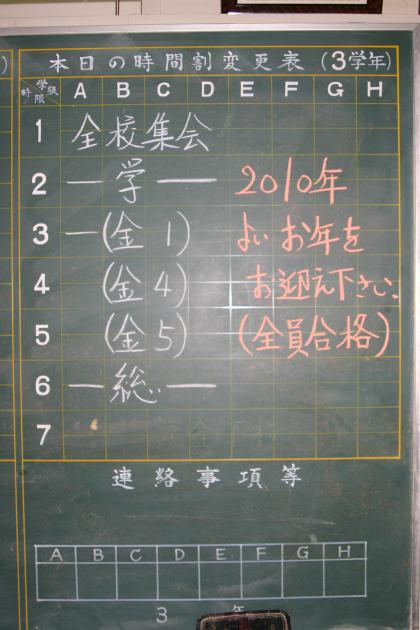 本日の時間割変更表(3学年)
時限 学級 A B C D E F G H
1 全校集会
2 ー学ー 2010年
3 ー(金1) よいお年を
4 (金4) お迎え下さい、
5 (金5) (全員合格)
6 ー総ー
7
連絡事項等
A B C D E F G H
3 年